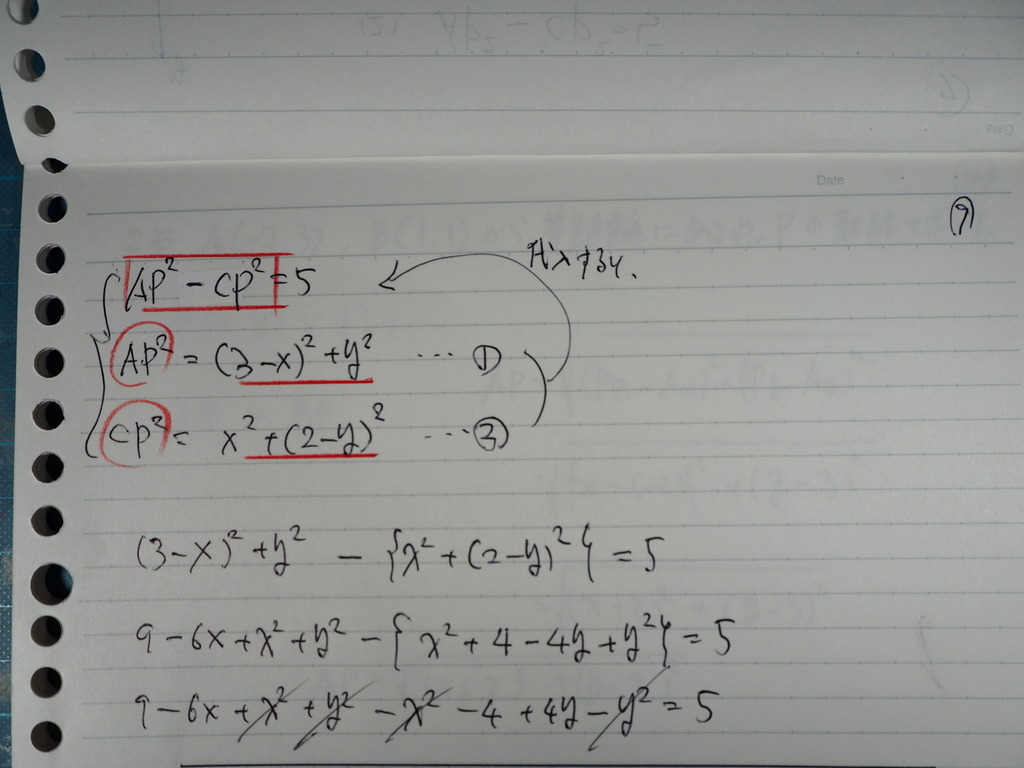 Date
⑦
AP² - CP² = 5
代入する.
AP² = (3-x)² + y² … ①
CP² = x² + (2-y)² … ③
(3-x)² + y² - {x² + (2-y)²} = 5
9 - 6x + x² + y² - {x² + 4 - 4y + y²} = 5
9 - 6x + x² + y² - x² - 4 + 4y - y² = 5